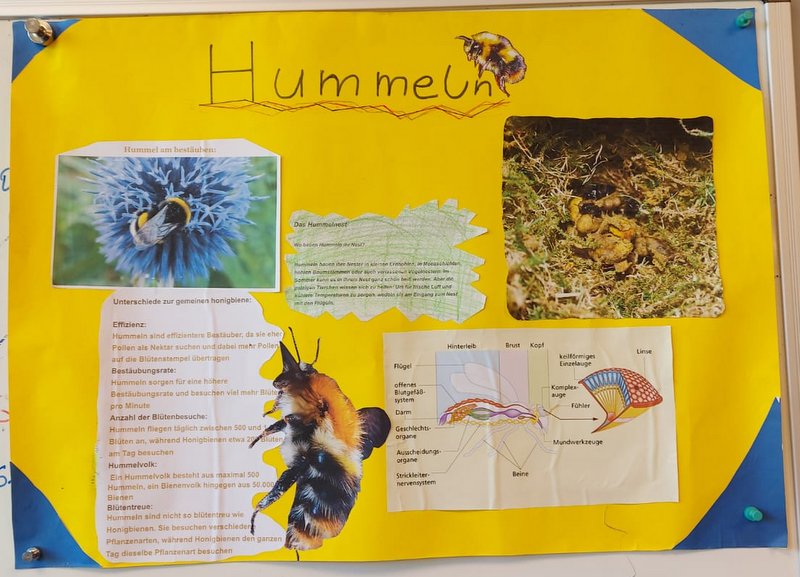 Hummeln
Hummel am bestäuben:
Das Hummelnest:
Wo bauen Hummeln ihr Nest?
Hummeln bauen ihre Nester in kleinen Erdhöhlen, in Moosschichten,
hohlen Baumstämmen oder auch verlassenen Vogelnestern. Im
Sommer kann es in ihrem Nest ganz schön heiß werden. Aber die
pelzigen Tierchen wissen sich zu helfen: Um für frische Luft und
kühlere Temperaturen zu sorgen, wedeln sie am Eingang zum Nest
mit den Flügeln.
Unterschiede zur gemeinen honigbiene:
Effizienz:
Hummeln sind effizientere Bestäuber, da sie eher
Pollen als Nektar suchen und dabei mehr Pollen
auf die Blütenstempel übertragen
Bestäubungsrate:
Hummeln sorgen für eine höhere
Bestäubungsrate und besuchen viel mehr Blüten
pro Minute
Anzahl der Blütenbesuche:
Hummeln fliegen täglich zwischen 500 und
Blüten an, während Honigbienen etwa Blüten
am Tag besuchen
Hummelvolk:
Ein Hummelvolk besteht aus maximal 500
Hummeln, ein Bienenvolk hingegen aus 50.000
Bienen
Blütentreue:
Hummeln sind nicht so blütentreu wie
Honigbienen. Sie besuchen verschiedene
Pflanzenarten, während Honigbienen den ganzen
Tag dieselbe Pflanzenart besuchen
Hinterleib Brust Kopf
Flügel
offenes
Blutgefäß-
system
Darm
Geschlechts-
organe
Ausscheidungs-
organe
Strickleiter-
nervensystem
Beine
keilförmiges
Einzelauge
Linse
Komplex-
auge
Fühler
Mundwerkzeuge